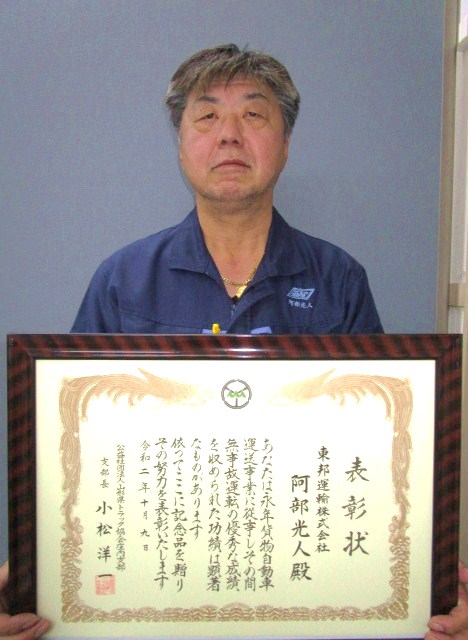 表彰状
東邦運輸株式会社
阿部光人殿
あなたは永年貨物自動車
運送事業に従事しその間
無事故運転の優秀な成績
を収められた功績は顕著
なものがあります
依ってここに記念品を贈り
その努力を表彰いたします
令和二年十月九日
公益社団法人山形県トラック協会庄内支部
支部長 小松洋一
阿部光人